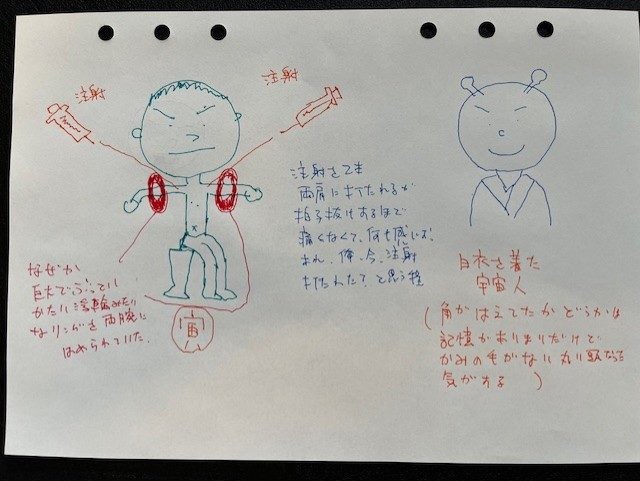 注射
注射
注射をてき
両肩に打たれるが
拍子抜けするほど
痛くなくて、何も感じず、
あれ、俺、今、注射
打たれたて、と思う程
なぜか
巨大でぶっとい
かたい浮輪みたい
なリングを両腕に
はめられていた。
宙
白衣を着た
宇宙人
(角がはえてたかどうかは
記憶があいまいだけど
かみの毛がない丸い頭だった
気がする)